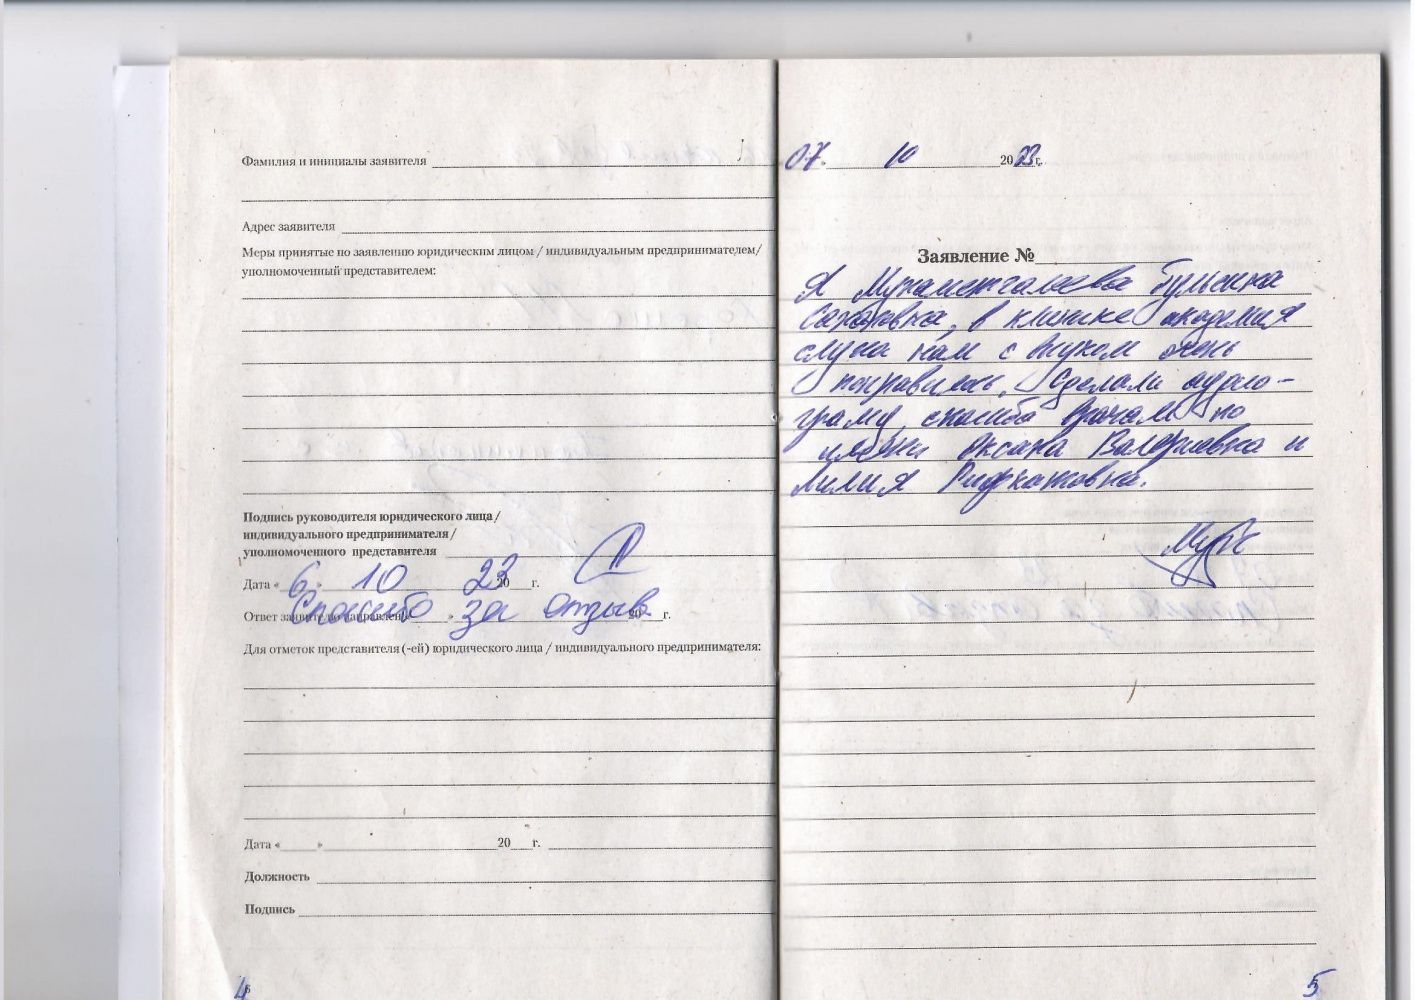 Фамилия и инициалы заявителя
Адрес заявителя
Меры принятые по заявлению юридическим лицом / индивидуальным предпринимателем/
уполномоченный представителем:
Подпись руководителя юридического лица/
индивидуального предпринимателя/
уполномоченного представителя
Дата « 6 » 10 23 20 г.
Спасибо за отзыв
Ответ заявителю направлен « » 20 г.
Для отметок представителя (-ей) юридического лица / индивидуального предпринимателя:
Дата « » 20 г.
Должность
Подпись
4
07 10 2023 г.
Заявление №
Я Мухаметгалеева Гульсина
в клинике академия
слуха нам с внуком очень
понравилось. Сделали аудио-
граму, спасибо врачам по
имени Оксана Валериевна и
Лилия Рифкатовна.
5